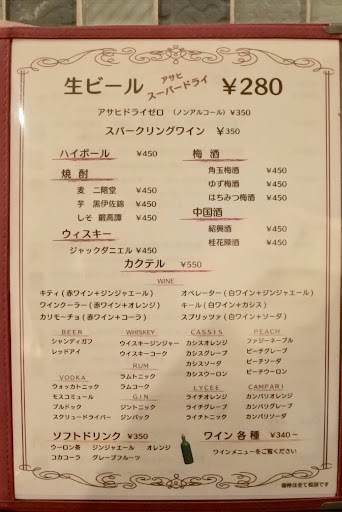 生ビール アサヒ スーパードライ ¥280
アサヒドライゼロ （ノンアルコール）¥350
スパークリングワイン ¥350
ハイボール ¥450
焼酎
麦 二階堂 ¥450
芋 黒伊佐錦 ¥450
しそ 鍛高譚 ¥450
ウィスキー
ジャックダニエル ¥450
梅酒
角玉梅酒 ¥450
ゆず梅酒 ¥450
はちみつ梅酒 ¥450
中国酒
紹興酒 ¥450
桂花陳酒 ¥450
カクテル ¥550
WINE
キティ(赤ワイン+ジンジャエール)
ワインクーラー(赤ワイン+オレンジ)
カリモーチョ(赤ワイン+コーラ)
オペレーター(白ワイン+ジンジャエール)
キール(白ワイン+カシス)
スプリッツァ(白ワイン+ソーダ)
BEER
シャンディガフ
レッドアイ
VODKA
ウォッカトニック
モスコミュール
ブルドック
スクリュードライバー
WHISKEY
ウイスキージンジャー
ウイスキーコーク
RUM
ラムトニック
ラムコーク
GIN
ジントニック
ジンバック
CASSIS
カシスオレンジ
カシスグレープ
カシスソーダ
カシスウーロン
LYCEE
ライチオレンジ
ライチグレープ
ライチトニック
PEACH
ファジーネーブル
ピーチグレープ
ピーチソーダ
ピーチウーロン
CAMPARI
カンパリオレンジ
カンパリグレープ
カンパリソーダ
ソフトドリンク ¥350
ウーロン茶 ジンジャエール オレンジ
コカコーラ グレープフルーツ
ワイン各種 ¥340～
ワインメニューをご覧ください
価格は全て税別です